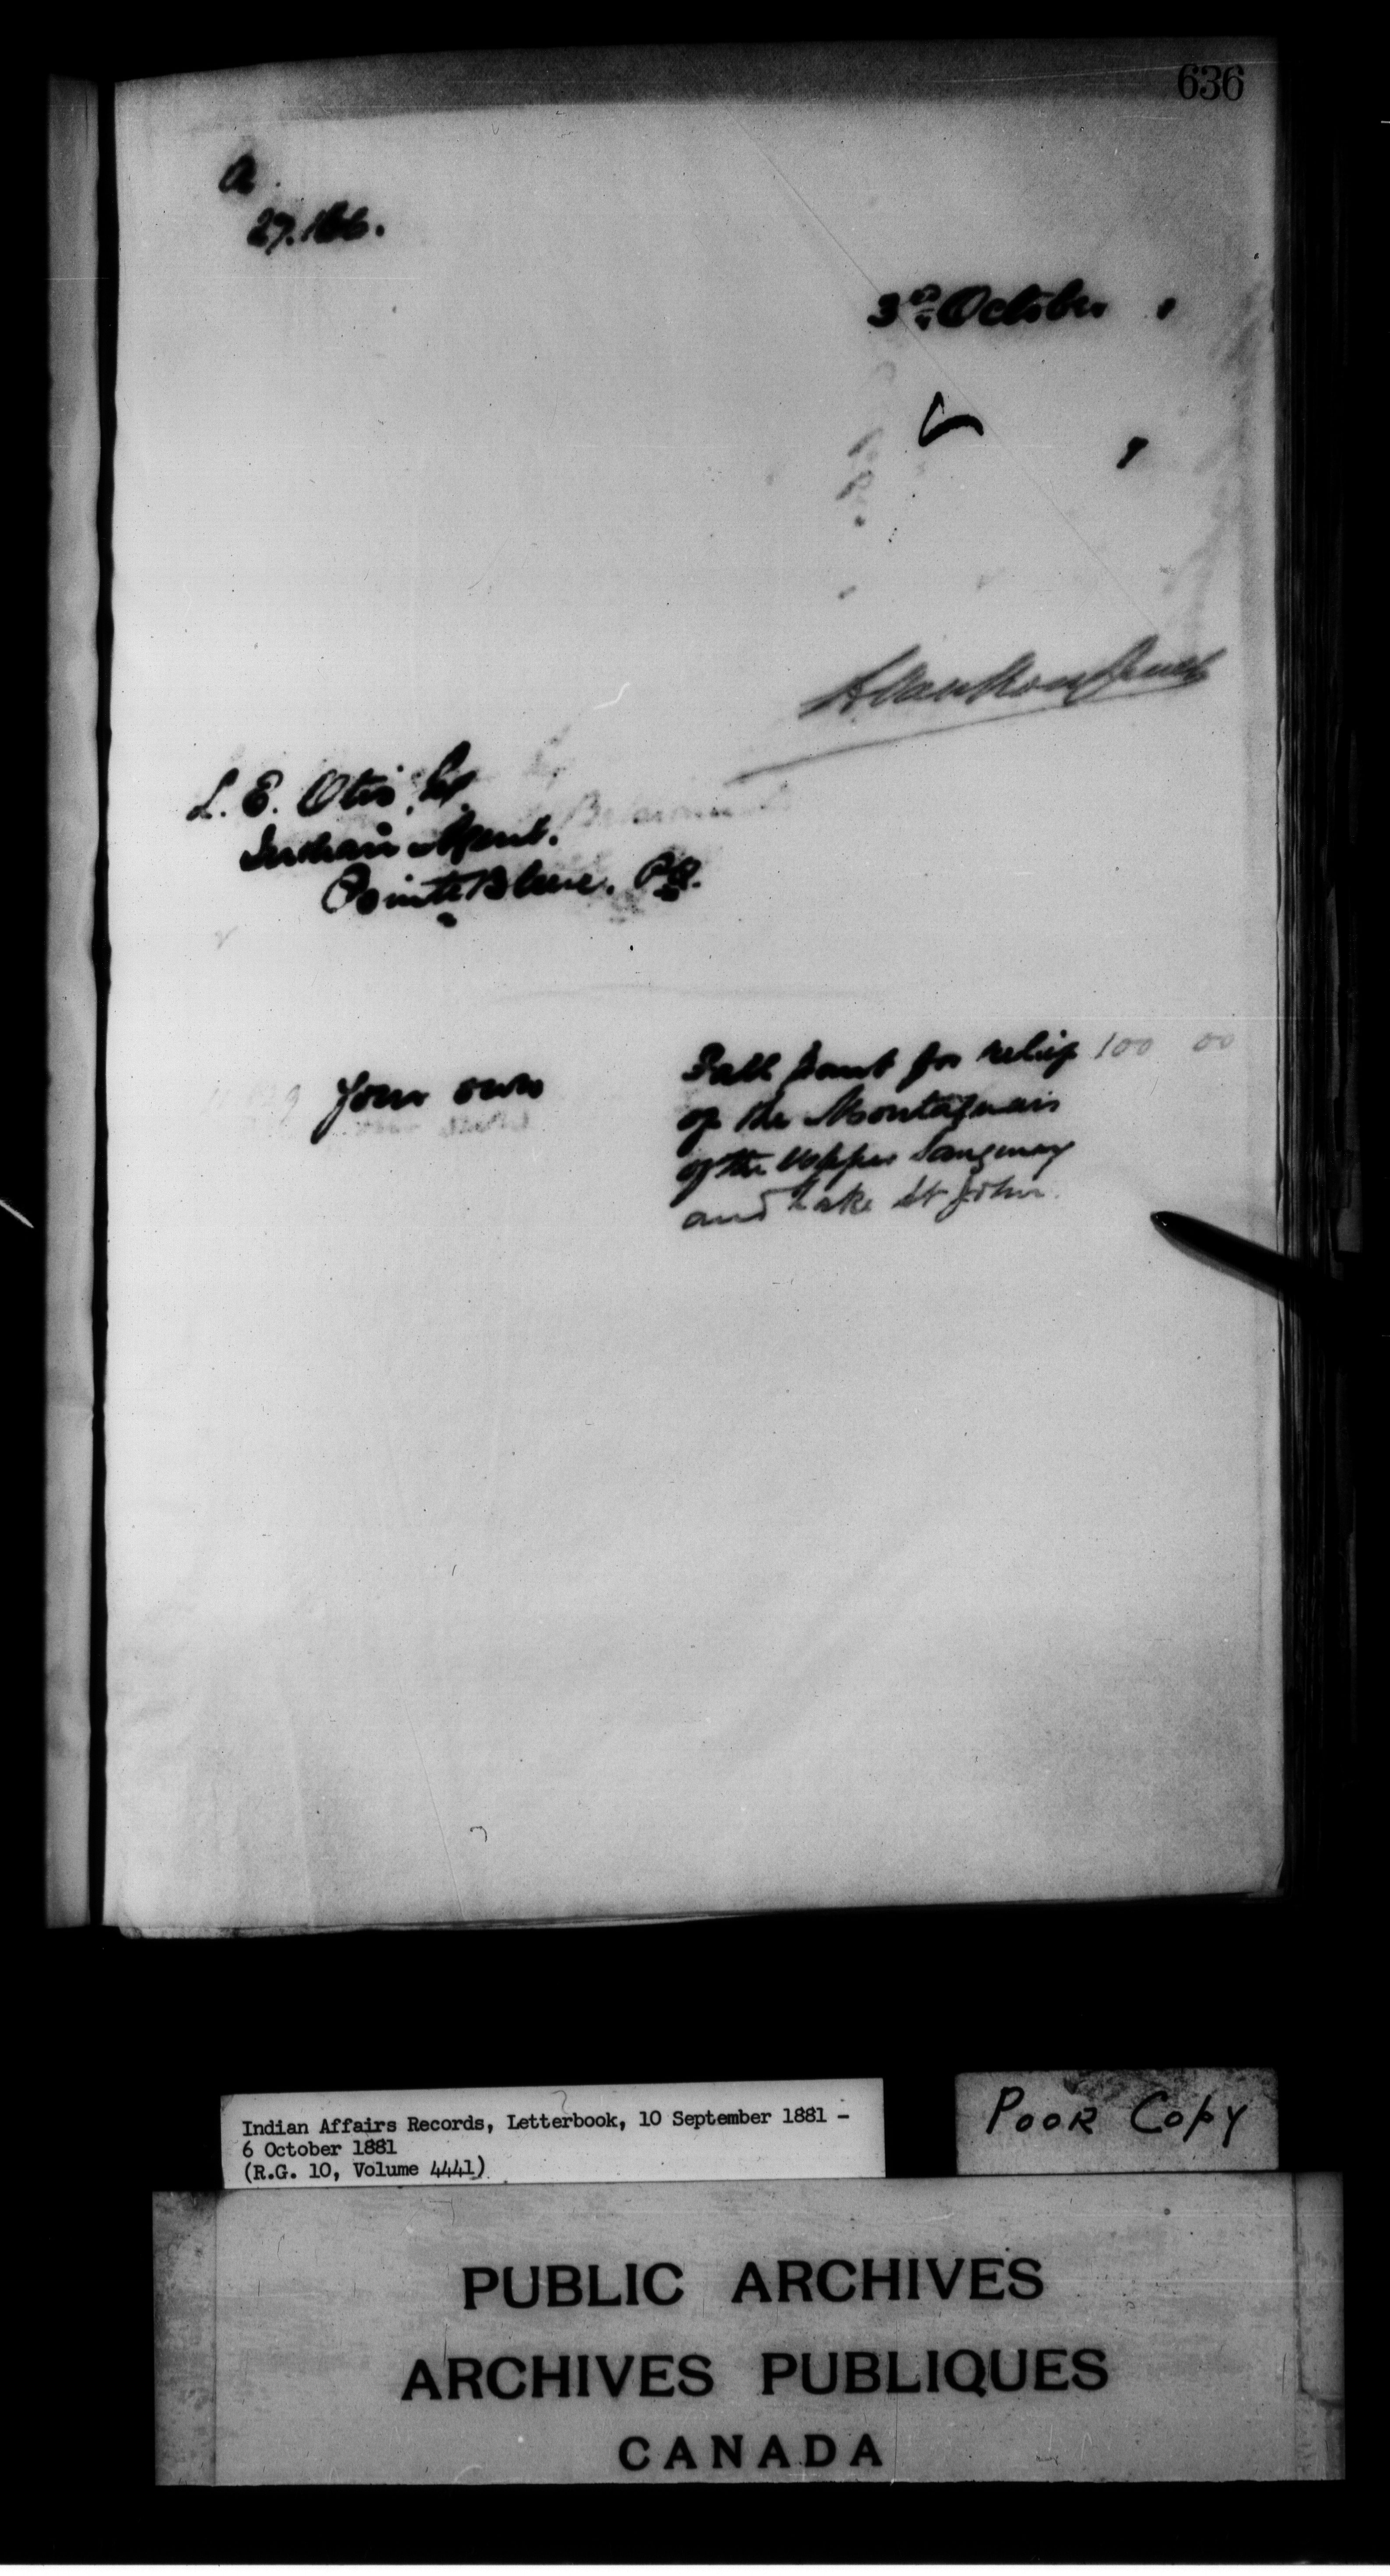 636
a
27.166.
3rd October
L. E. Otis, Esq
Indian Agent.
Pointe Bleue. P.Q.
Your own
Fall Grant for relief 100 00
of the Montagnais
of the Upper Saguenay
and Lake St John.
Indian Affairs Records, Letterbook, 10 September 1881 -
6 October 1881
(R.G. 10, Volume 4441)
Poor Copy
PUBLIC ARCHIVES
ARCHIVES PUBLIQUES
CANADA